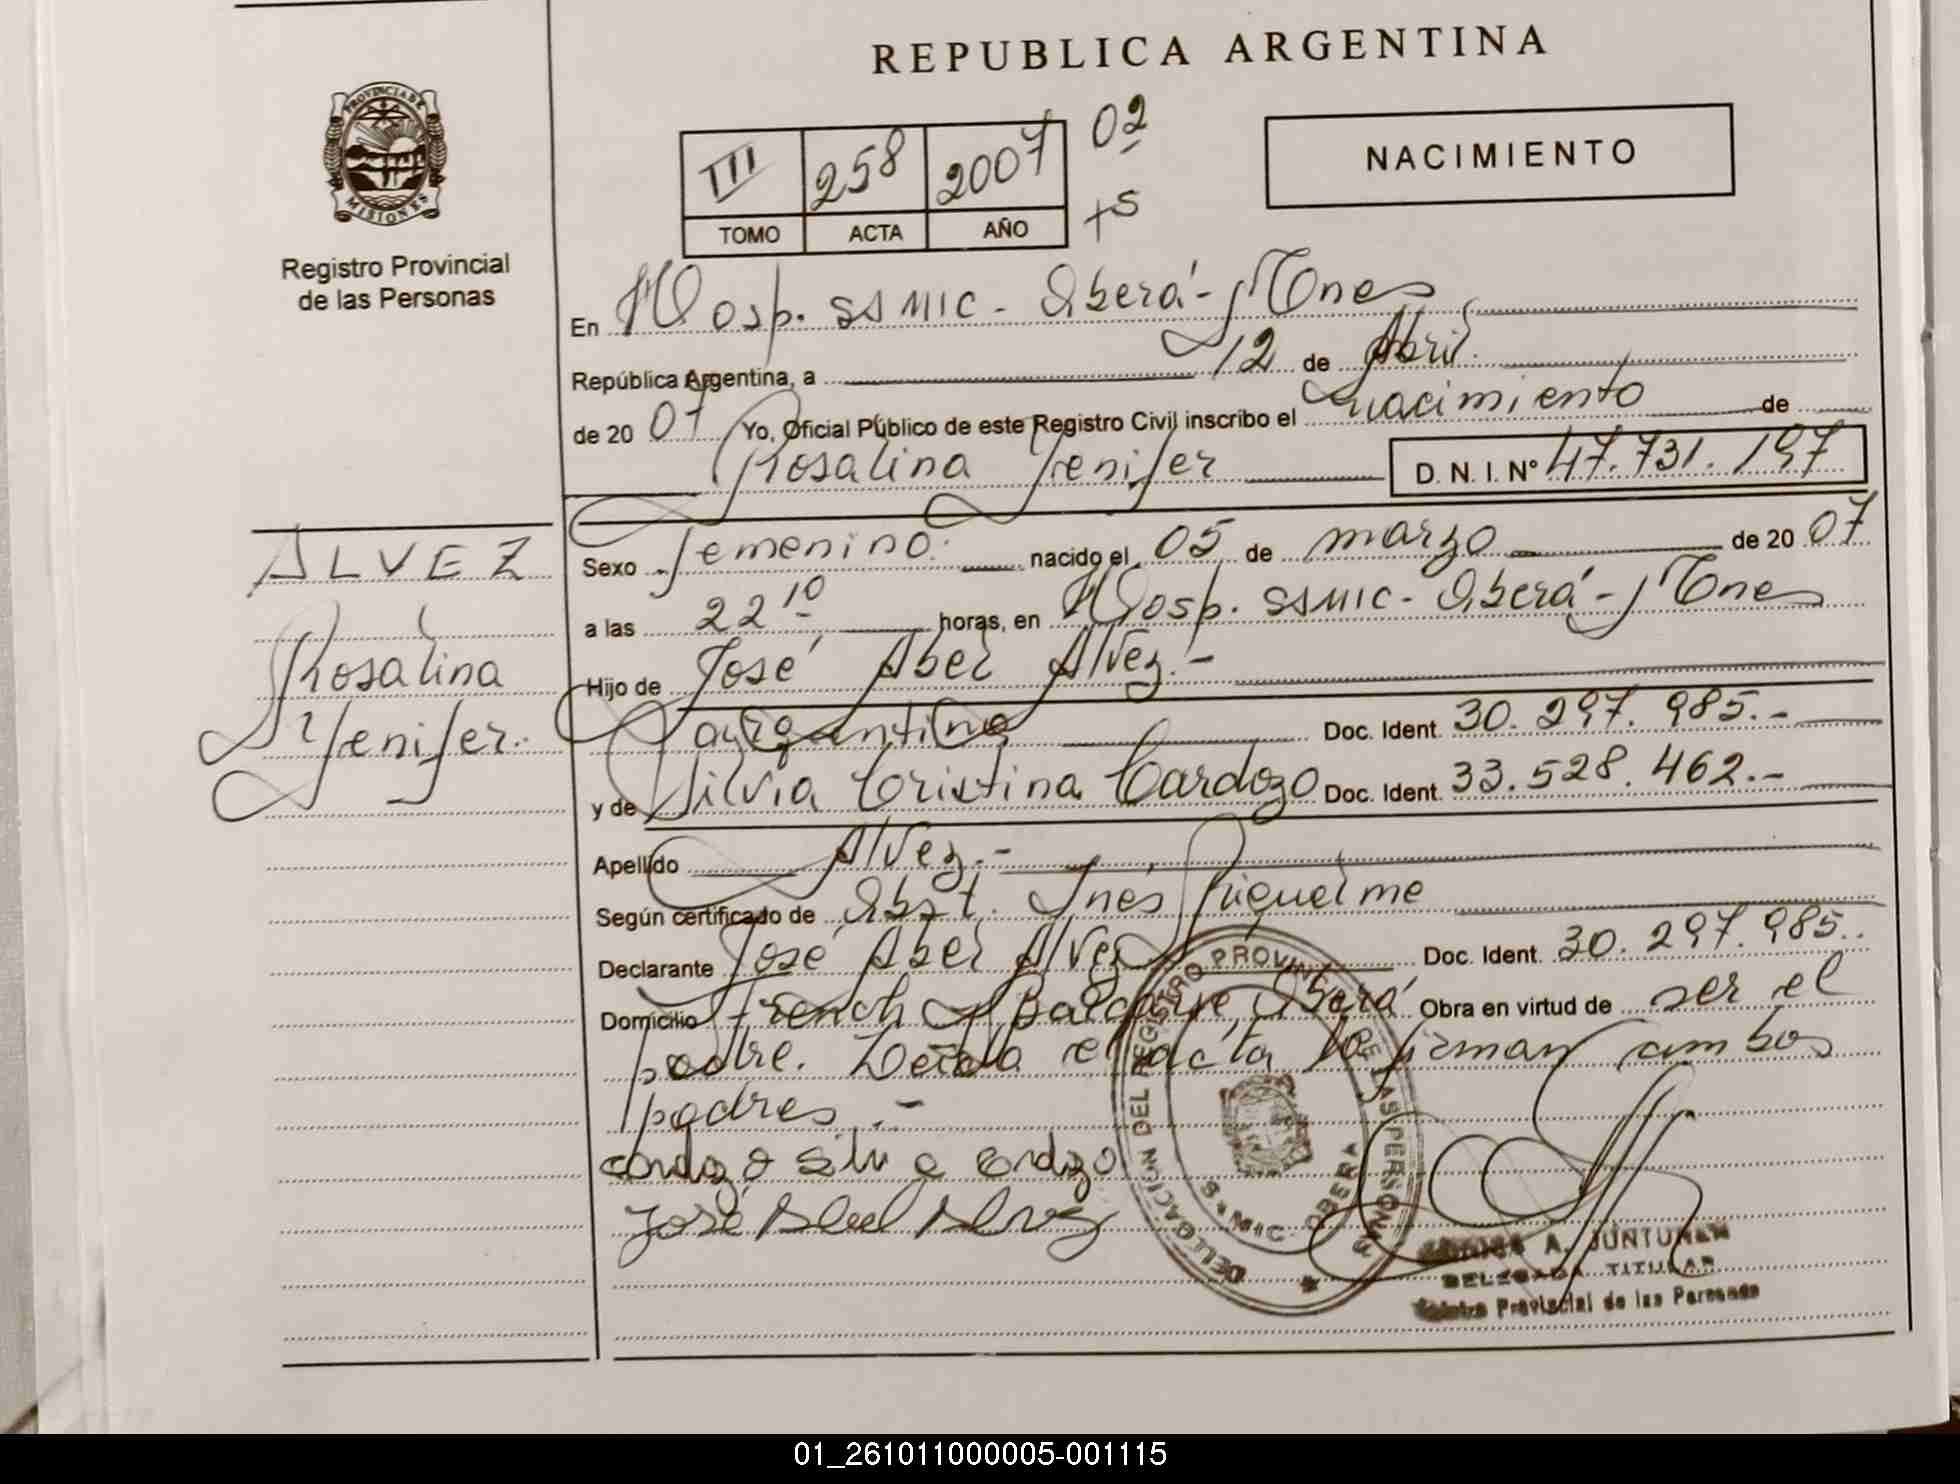 REPUBLICA ARGENTINA
PROVINCIA DE
MISIONES
Registro Provincial
de las Personas
III 258 2007 02
TOMO ACTA AÑO +5
NACIMIENTO
En Hosp. SAMIC - Oberá - Mnes
República Argentina, a 12 de Abril
de 20 07 Yo, Oficial Público de este Registro Civil inscribo el nacimiento de
Rosalina Yenifer D. N. I. Nº 47.731.197
ALVEZ
Rosalina
Yenifer.-
Sexo femenino. nacido el 05 de marzo de 20 07
a las 22 10 horas, en Hosp. SAMIC - Oberá - Mnes
Hijo de José Abel Alvez.-
argentino Doc. Ident. 30.297.985.-
y de Silvia Cristina Cardozo Doc. Ident. 33.528.462.-
Apellido Alvez.-
Según certificado de Obst. Inés Riquelme
Declarante José Abel Alvez Doc. Ident. 30.297.985..
Domicilio French y Balcarse Oberá Obra en virtud de ser el
padre. Leída el acta la firman ambos
padres.-
José Abel Alvez
DELEGACION DEL REGISTRO PROVINCIAL DE LAS PERSONAS
SAMIC OBERA
A. JUNTUNEN
DELEGADA TITULAR
Registro Provincial de las Personas
01_261011000005-001115